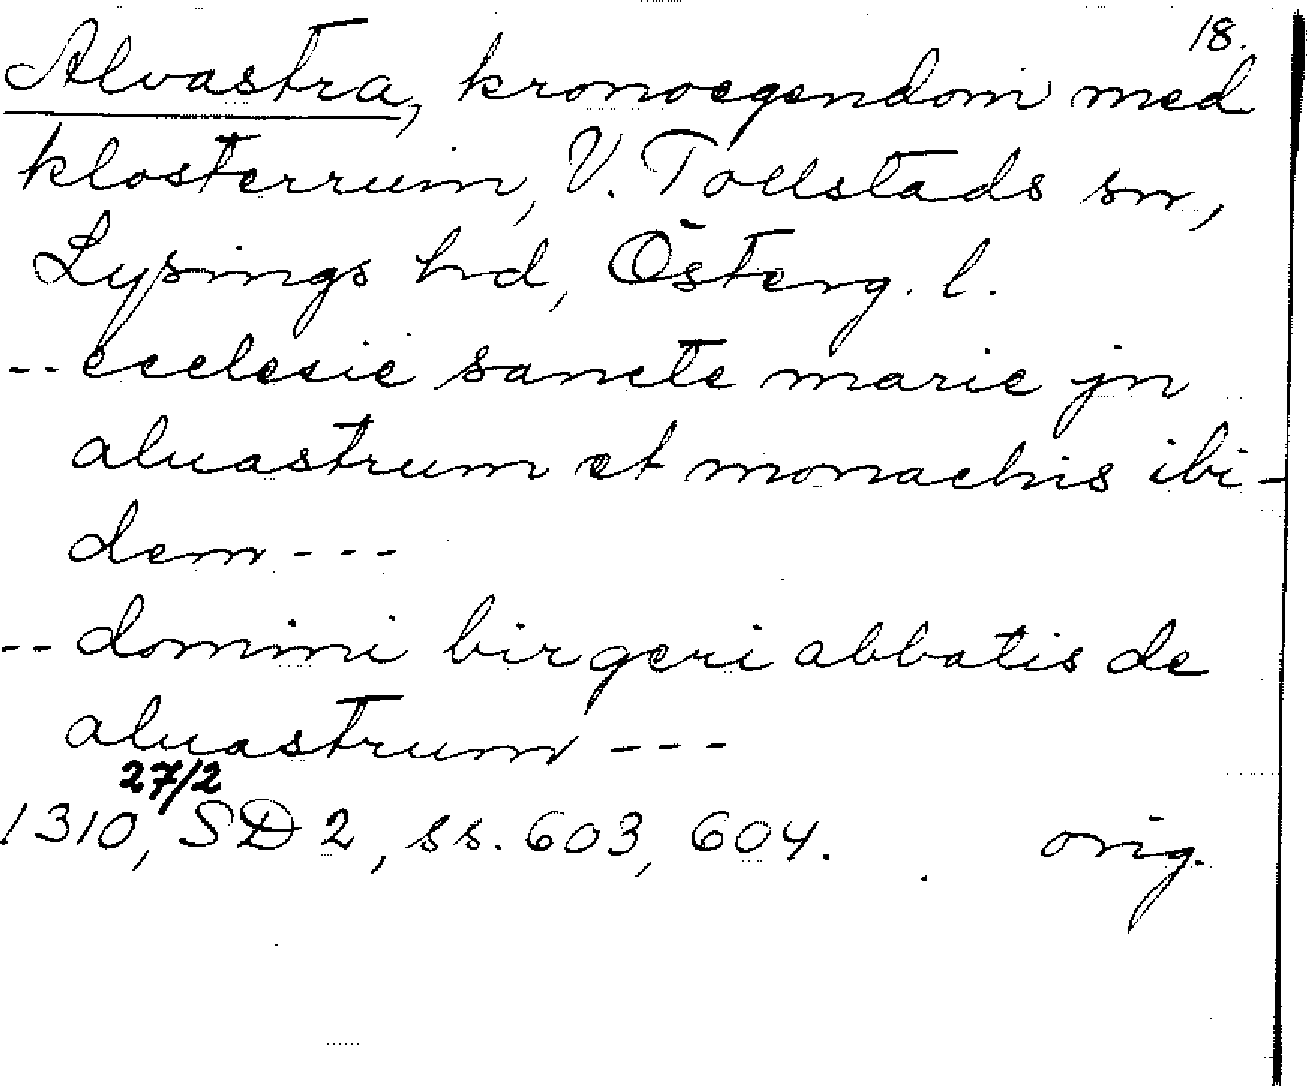 18.
Alvastra, kronoegendom med
klosterruin, V. Tollstads sn,
Lysings hd, Österg. l.
-- ecclesie sancte marie jn
aluastrum et monachis ibi-
dem ---
-- domini birgeri abbatis de
aluastrum ---
27/2
1310, SD 2, ss. 603, 604. orig.